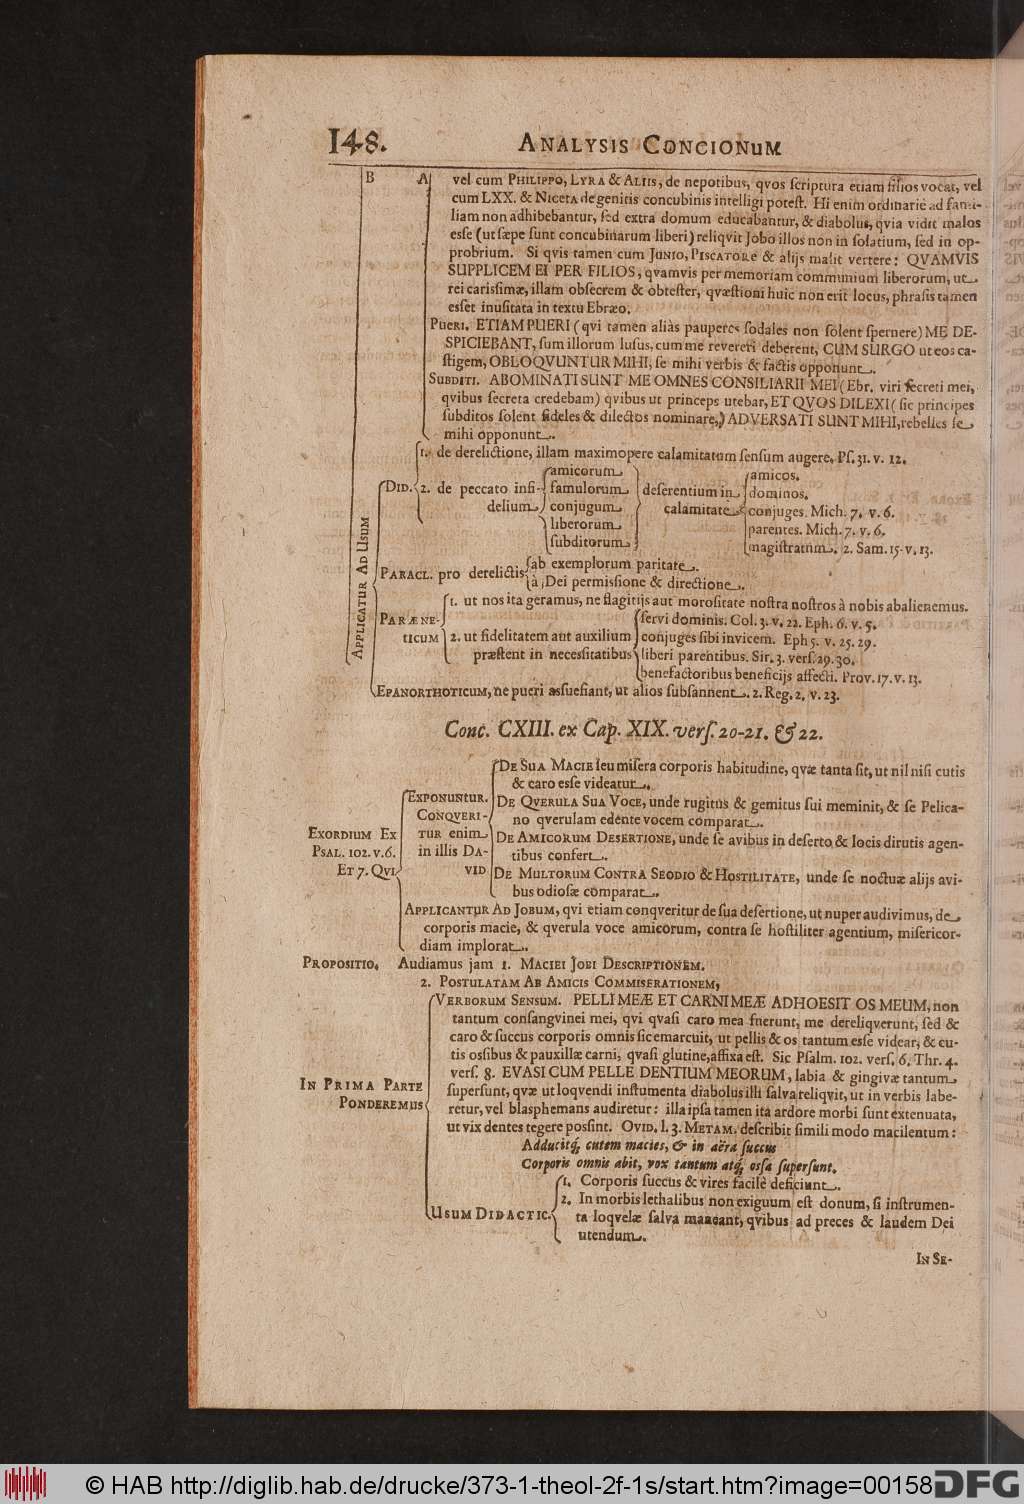 148. ANALYSIS CONCIONUM
B A vel cum PHILIPPO, LYRA & ALIIS, de nepotibus, qvos ſcriptura etiam filios vocat, vel
cum LXX. & NICETA de genitis concubinis intelligi poteſt. Hi enim ordinariè ad fami-
liam non adhibebantur, ſed extra domum educabantur, & diabolus, qvia vidit malos
eſſe (ut ſæpe ſunt concubinarum liberi) reliqvit Jobo illos non in ſolatium, ſed in op-
probrium. Si qvis tamen cum JUNIO, PISCATORE & alijs malit vertere: QVAMVIS
SUPPLICEM EI PER FILIOS, qvamvis per memoriam communium liberorum, ut
rei carisſimæ, illam obſecrem & obteſter, qvæſtioni huic non erit locus, phraſis tamen
esſet inuſitata in textu Ebræo.
PUERI. ETIAM PUERI (qvi tamen aliàs pauperes ſodales non ſolent ſpernere) ME DE-
SPICIEBANT, ſum illorum luſus, cum me revereri deberent, CUM SURGO ut eos ca-
ſtigem, OBLOQVUNTUR MIHI, ſe mihi verbis & factis opponunt.
SUBDITI. ABOMINATI SUNT ME OMNES CONSILIARII MEI (Ebr. viri ſecreti mei,
qvibus ſecreta credebam) qvibus ut princeps utebar, ET QVOS DILEXI (ſic principes
ſubditos ſolent fideles & dilectos nominare,) ADVERSATI SUNT MIHI, rebelles ſe
mihi opponunt.
APPLICATUR AD USUM
1. de derelictione, illam maximopere calamitatum ſenſum augere. Pſ. 31. v. 12.
amicorum amicos.
DID. 2. de peccato infi- famulorum deſerentium in dominos.
delium conjugum calamitate conjuges. Mich. 7. v. 6.
liberorum parentes. Mich. 7. v. 6.
ſubditorum magiſtratum. 2. Sam. 15. v. 13.
PARACL. pro derelictis ab exemplorum paritate.
à Dei permisſione & directione.
1. ut nos ita geramus, ne flagitijs aut moroſitate noſtra noſtros à nobis abalienemus.
PARÆNE- ſervi dominis. Col. 3. v. 22. Eph. 6. v. 5.
TICUM 2. ut fidelitatem aut auxilium conjuges ſibi invicem. Eph 5. v. 25. 29.
præſtent in necesſitatibus liberi parentibus. Sir. 3. verſ. 29. 30.
benefactoribus beneficijs affecti. Prov. 17. v. 13.
EPANORTHOTICUM, ne pueri asſueſiant, ut alios ſubſannent. 2. Reg. 2. v. 23.
Conc. CXIII. ex Cap. XIX. verſ. 20-21. & 22.
DE SUA MACIE ſeu miſera corporis habitudine, qvæ tanta ſit, ut nil niſi cutis
& caro esſe videatur.
EXPONUNTUR. DE QVERULA SUA VOCE, unde rugitus & gemitus ſui meminit, & ſe Pelica-
CONQVERI- no qverulam edente vocem comparat.
EXORDIUM EX TUR enim DE AMICORUM DESERTIONE, unde ſe avibus in deſerto & locis dirutis agen-
PSAL. 102. v. 6. in illis DA- tibus confert.
ET 7. QVI VID DE MULTORUM CONTRA SE ODIO & HOSTILITATE, unde ſe noctuæ alijs avi-
bus odioſæ comparat.
APPLICANTUR AD JOBUM, qvi etiam conqveritur de ſua deſertione, ut nuper audivimus, de
corporis macie, & qverula voce amicorum, contra ſe hoſtiliter agentium, miſericor-
diam implorat.
PROPOSITIO. Audiamus jam 1. MACIEI JOBI DESCRIPTIONEM.
2. POSTULATAM AB AMICIS COMMISERATIONEM,
VERBORUM SENSUM. PELLI MEÆ ET CARNI MEÆ ADHOESIT OS MEUM, non
tantum conſangvinei mei, qvi qvaſi caro mea fuerunt, me dereliqverunt, ſed &
caro & ſuccus corporis omnis ſic emarcuit, ut pellis & os tantum esſe videar, & cu-
tis osſibus & pauxillæ carni, qvaſi glutine, affixa eſt. Sic Pſalm. 102. verſ. 6. Thr. 4.
verſ. 8. EVASI CUM PELLE DENTIUM MEORUM, labia & gingivæ tantum
IN PRIMA PARTE ſuperſunt, qvæ ut loqvendi inſtumenta diabolus illi ſalva reliqvit, ut in verbis labe-
PONDEREMUS retur, vel blasphemans audiretur: illa ipſa tamen ita ardore morbi ſunt extenuata,
ut vix dentes tegere posſint. OVID. l. 3. METAM. deſcribit ſimili modo macilentum:
Adducitq; cutem macies, & in aëra ſuccus
Corporis omnis abit, vox tantum atq; osſa ſuperſunt.
1. Corporis ſuccus & vires facilè deficiunt.
2. In morbis lethalibus non exiguum eſt donum, ſi inſtrumen-
USUM DIDACTIC. ta loqvelæ ſalva maneant, qvibus ad preces & laudem Dei
utendum.
IN SE-
© HAB http://diglib.hab.de/drucke/373-1-theol-2f-1s/start.htm?image=00158
DFG